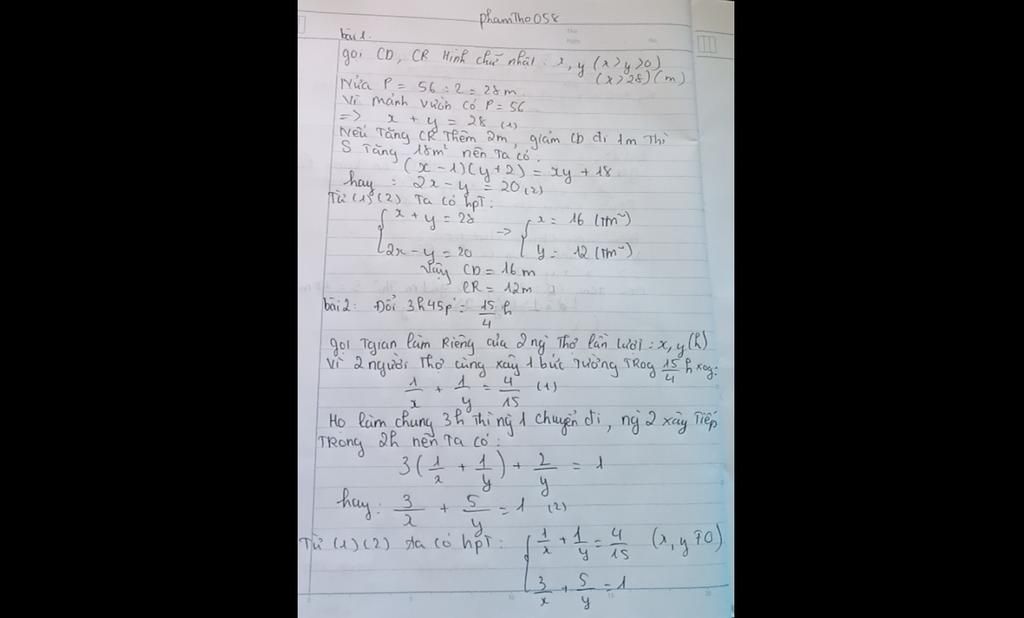 phamTho058
bài 1.
gọi CD, CR Hình chữ nhật : x, y (x > y > 0)
(x > 28) (m)
Nửa P = 56 : 2 = 28 m
Vì mảnh vườn có P = 56
=> x + y = 28 (1)
Nếu Tăng CR Thêm 2m, giảm CD đi 1m Thì
S Tăng 18m² nên Ta có :
(x - 1)(y + 2) = xy + 18
hay : 2x - y = 20 (2)
Từ (1) (2) Ta có hpT :
{ x + y = 28 -> { x = 16 (Tm²)
{ 2x - y = 20 { y = 12 (Tm²)
Vậy CD = 16 m
CR = 12m
bài 2 : Đổi 3h45p' = 15/4 h
gọi Tgian làm Riêng của 2 ng' Thợ lần lượt : x, y (h)
Vì 2 người Thợ cùng xây 1 bức Tường TRog 15/4 h xog:
1/x + 1/y = 4/15 (1)
Họ làm chung 3h Thì ng' 1 chuyển đi, ng' 2 xây Tiếp
TRong 2h nên Ta có :
3(1/x + 1/y) + 2/y = 1
hay : 3/x + 5/y = 1 (2)
Từ (1) (2) ta có hpT : { 1/x + 1/y = 4/15 (x, y ≠ 0)
{ 3/x + 5/y = 1